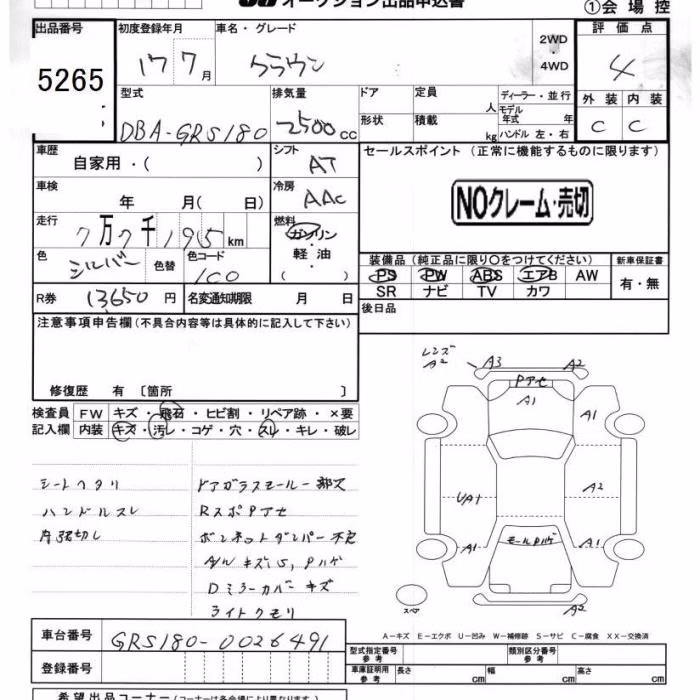 オークション出品申込書
①会場控
出品番号
5265
初度登録年月
17 7月
車名・グレード
クラウン
2WD
・
4WD
評価点
4
外装 内装
C C
型式
DBA-GRS180
排気量
2500cc
ドア
形状
定員
人
積載
kg
ディーラー・並行
モデル年式 年
ハンドル 左・右
車歴
自家用・( )
シフト
AT
セールスポイント(正常に機能するものに限ります)
NOクレーム・売切
車検
年 月( 日)
冷房
AAC
走行
7万7千195km
燃料
ガソリン
・
軽油
・
( )
色
シルバー
色替
色コード
1C0
装備品(純正品に限り○をつけてください)
PS PW ABS エアB AW
SR ナビ TV カワ
新車保証書
有・無
R券
13650円
名変通知期限 月 日
後日品
注意事項申告欄(不具合内容等は具体的に記入して下さい)
修復歴 有〔箇所 〕
検査員
記入欄
FW キズ・飛石・ヒビ割・リペア跡・×要
内装 キズ・汚レ・コゲ・穴・スレ・キレ・破レ
シートヘタリ
ハンドルスレ
内張切レ
ドアガラスモール一部欠
RスポPアセ
ボンネットダンパー不良
A/Wキズ15, Pハゲ
Dミラーカバーキズ
ライトクモリ
レンズ
A2
A3
A2
Pアセ
A1
A1
UA1
A2
A1
モールPハゲ
A1
スペア
A2
A-キズ E-エクボ U-凹み W-補修跡 S-サビ C-腐食 XX-交換済
車台番号
GRS180-0026491
登録番号
型式指定番号
参考
類別区分番号
参考
車庫証明用
参考
長さ cm
幅 cm
高さ cm
希望出品コーナー(コーナーは各会場により異なります)